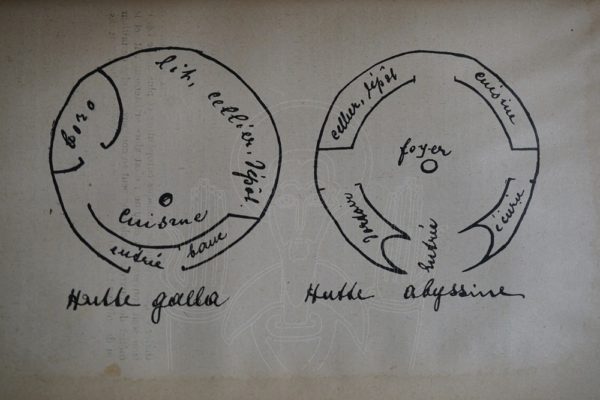 boro
lit, cellier, dépôt
cuisine
entrée
banc
Hutte galla
cellier, dépôt
cuisine
foyer
écurie
Entrée
Hutte abyssine